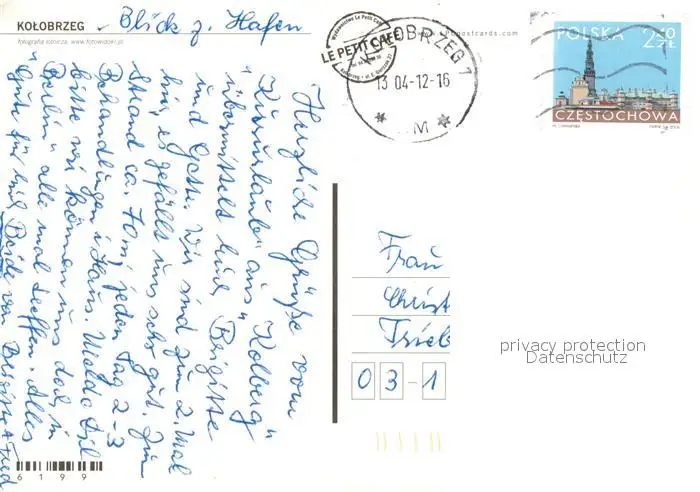 KOŁOBRZEG
Blick z. Hafen
fotografia lotnicza www.fotowidoki.pl
postcards.com
Wydawnictwo Le Petit Café
LE PETIT CAFE
KOŁOBRZEG 1
13 04-12-16
M
POLSKA
2,50 ZŁ
CZĘSTOCHOWA
Herzliche Grüße vom
"Kurzurlaub" aus "Kolberg"
übermittelt Euch Brigitte
und Gette. Wir sind zum 2. Mal
hier, es gefällt uns sehr gut. Zum
Strand ca. 70 m, jeden Tag 2-3
Behandlungen i. Haus. Melde Dich
bitte wir können uns doch in
"Berlin" alle mal treffen. Alles
Gute für Euch Beide von Brigitte +
Frau
Christ
Trieb
03-1
privacy protection
Datenschutz
6199